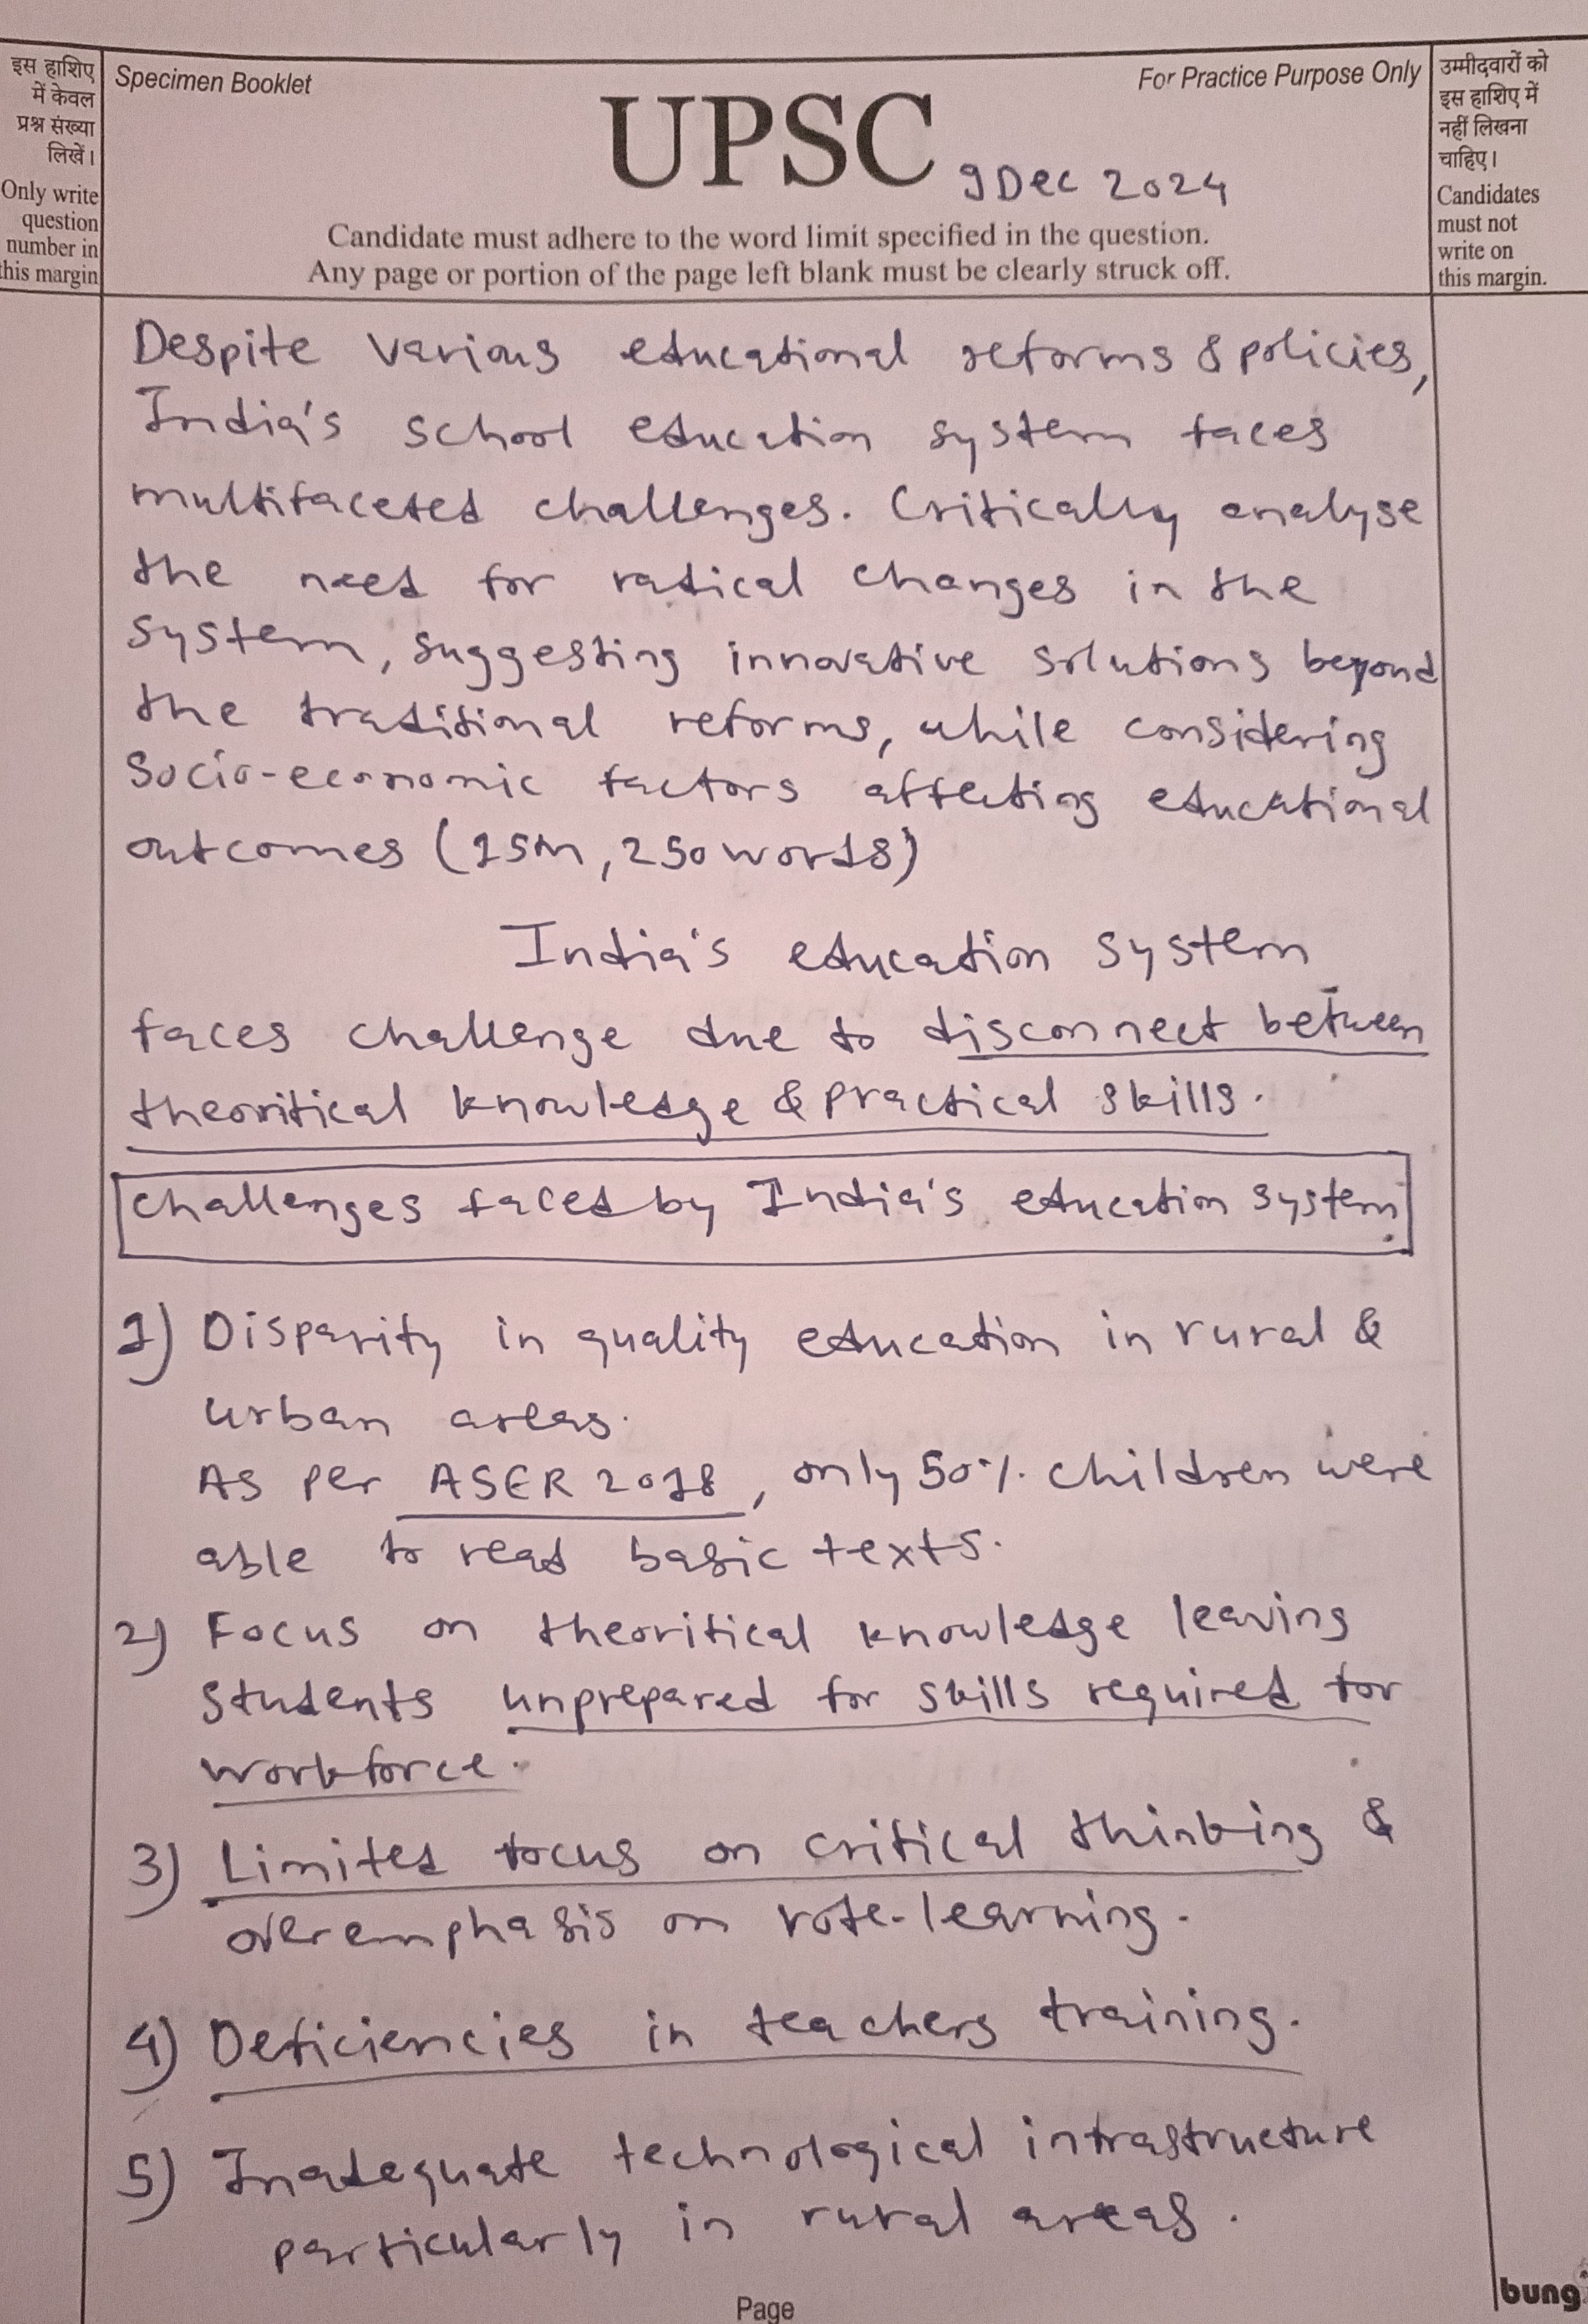 इस हाशिए
में केवल
प्रश्न संख्या
लिखें।
Only write
question
number in
this margin
Specimen Booklet
For Practice Purpose Only
UPSC
9 Dec 2024
Candidate must adhere to the word limit specified in the question.
Any page or portion of the page left blank must be clearly struck off.
उम्मीदवारों को
इस हाशिए में
नहीं लिखना
चाहिए।
Candidates
must not
write on
this margin.
Despite various educational reforms & policies,
India's school education system faces
multifaceted challenges. Critically analyse
the need for radical changes in the
system, suggesting innovative solutions beyond
the traditional reforms, while considering
socio-economic factors affecting educational
outcomes (15M, 250 words)
India's education system
faces challenge due to disconnect between
theoritical knowledge & practical skills.
Challenges faced by India's education system
1) Disparity in quality education in rural &
urban areas.
As per ASER 2018, only 50% children were
able to read basic texts.
2) Focus on theoritical knowledge leaving
students unprepared for skills required for
workforce.
3) Limited focus on critical thinking &
overemphasis on rote-learning.
4) Deficiencies in teachers training.
5) Inadequate technological infrastructure
particularly in rural areas.
Page
bung